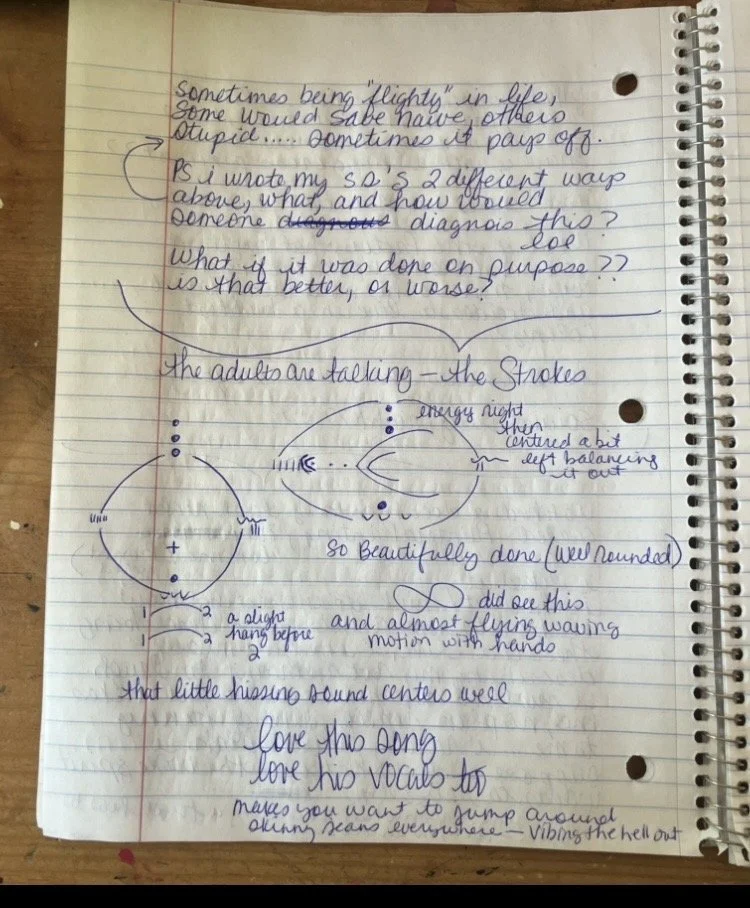 Sometimes being "flighty" in life,
Some would sabe naive, others
stupid..... sometimes it pays off.
PS i wrote my SO'S 2 different ways
above, what, and how would
someone diagnos diagnois this?
lol
What if it was done on purpose??
is that better, or worse?
the adults are talking - the Strokes
energy right
then
centered a bit
left balancing
it out
+
so Beautifully done (Well rounded)
∞ did see this
and almost flying waving
motion with hands
1 2 a slight
1 2 hang before
2
that little hissing sound centers well
love this song
love his vocals too
makes you want to jump around
skinny jeans everywhere - Vibing the hell out